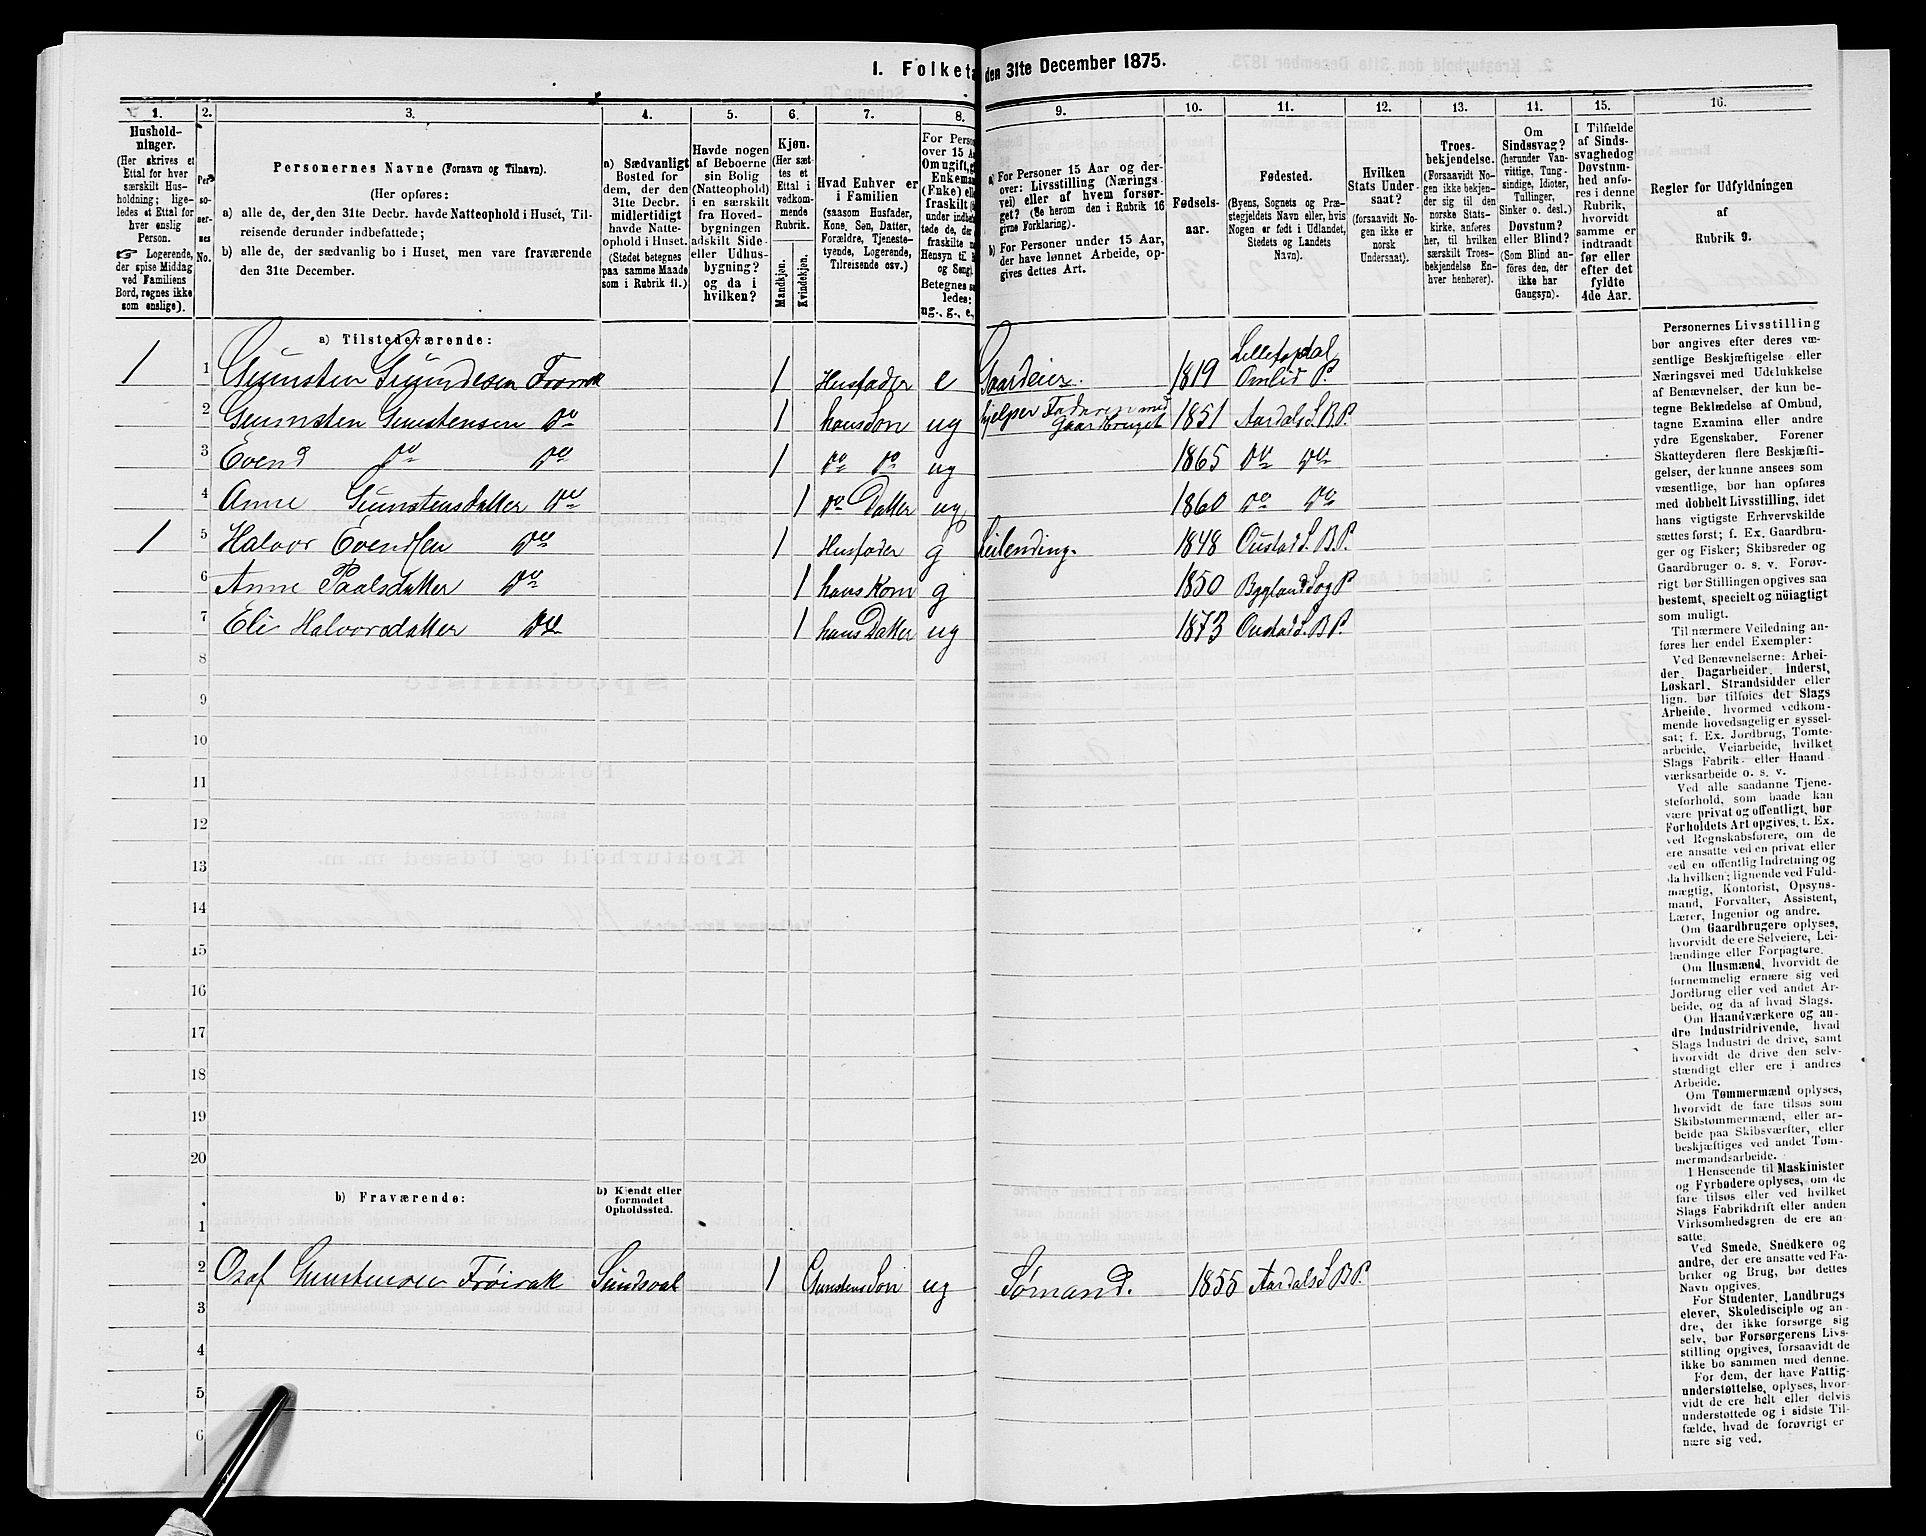 I. Folketa
den 31te December 1875.
1.
2.
3.
4.
5.
6.
7.
8.
9.
10.
11.
12.
13.
14.
15.
16.
Hushold-
ninger.
(Her skrives et
Ettal for hver
særskilt Hus-
holdning; lige-
ledes et Ettal for
hver enslig
Person.
☞ Logerende,
der spise Middag
ved Familiens
Bord, regnes ikke
som enslige).
Per-
so-
ner-
nes
No.
Personernes Navne (Fornavn og Tilnavn).
(Her opføres:
a) alle de, der den 31te Decbr. havde Natteophold i Huset, Til-
reisende derunder indbefattede;
b) alle de, der sædvanlig bo i Huset, men vare fraværende
den 31te December.
a) Sædvanligt
Bosted for
dem, der den
31te Decbr.
midlertidigt
havde Natte-
ophold i Huset.
(Stedet betegnes
paa samme Maade
som i Rubrik 11.)
Havde nogen
af Beboerne
sin Bolig
(Natteophold)
i en særskilt
fra Hoved-
bygningen
adskilt Side-
eller Udhus-
bygning?
og da i
hvilken?
Kjøn.
(Her sæt-
tes et
Ettal i
vedkom-
mende
Rubrik.
Mandkjøn.
Kvindekjøn.
Hvad Enhver er
i Familien
(saasom Husfader,
Kone, Søn, Datter,
Forældre, Tjeneste-
tyende, Logerende,
Tilreisende osv.)
For Perso
over 15 Aa
Om ugift, g
Enkeman
(Fuke) elle
fraskilt (
under indbe
tede de, der
fraskilte n
Hensyn til B
og Seng).
Betegnes sa
ledes:
ug., g., e,
a) For Personer 15 Aar og der-
over: Livsstilling (Nærings-
vei) eller af hvem forsør-
get? (Se herom den i Rubrik 16
givne Forklaring).
b) For Personer under 15 Aar,
der have lønnet Arbeide, op-
gives dettes Art.
Fødsels-
aar.
Fødested.
(Byens, Sognets og Præ-
stegjeldets Navn eller, hvis
Nogen er født i Udlandet,
Stedets og Landets
Navn).
Hvilken
Stats Under-
saat?
(forsaavidt No-
gen ikke er
norsk
Undersaat).
Troes-
bekjendelse.
(Forsaavidt No-
gen ikke bekjen-
der sig til den
norske Stats-
kirke, anføres
her, til hvilken
særskilt Troes-
bekjendelse En-
hver henhører).
Om
Sindssvag?
(herunder Van-
vittige, Tung-
sindige, Idioter,
Tullinger,
Sinker o. desl.)
Døvstum?
eller Blind?
(Som Blind an-
føres den, der
ikke har
Gangsyn).
I Tilfælde
af Sinds-
svaghed og
Døvstum-
hed anfø-
res i denne
Rubrik,
hvorvidt
samme er
indtraadt
før eller
efter det
fyldte
4de Aar.
Regler for Udfyldningen
af
Rubrik 9.
a) Tilstedeværende:
1 1 Gunsten Gundesen Frøirak 1 Husfader e Gaardeier. 1819 Omlid P.
2 Gunsten Gunstensen Do 1 hans Søn ug hjelper Faderen med Gaardbruget 1851 Aardals S. B. P.
3 Evend Do Do 1 Do Do ug 1865 Do Do
4 Anne Gunstensdatter Do 1 Do Datter ug 1860 Do Do
1 5 Halvor Evendsen Do 1 Husfader g Leilending. 1848 Oustad S. B. P.
6 Anne Paalsdatter Do 1 hans Kone g 1850 Bygland Sog P.
7 Eli Halvorsdatter Do 1 hans Datter ug 1873 Oustad S. B P.
8
9
10
11
12
13
14
15
16
17
18
19
20
b) Fraværende:
b) Kjendt eller
formodet
Opholdssted.
1
2 Osof Gunstensen Frøirak Sundsval 1 Gunstens Søn ug Sømand. 1855 Aardals S. B P.
3
4
5
6
Personernes Livsstilling
bør angives efter deres væ-
sentlige Beskjæftigelse eller
Næringsvei med Udelukkelse
af Benævnelser, der kun be-
tegne Beklædelse af Ombud,
tagne Examina eller andre
ydre Egenskaber. Forener
Skatteyderen flere Beskjæfti-
gelser, der kunne ansees som
væsentlige, bør han opføres
med dobbelt Livsstilling, idet
hans vigtigste Erhvervskilde
sættes først; f. Ex. Gaardbru-
ger og Fisker; Skibsreder og
Gaardbruger o. s. v. Forøv-
rigt bør Stillingen opgives saa
bestemt, specielt og nöiagtigt
som muligt.
Til nærmere Veiledning an-
føres her endel Exempler:
Ved Benævnelserne: Arbei-
der, Dagarbeider, Inderst,
Løskarl, Strandsidder eller
lign. bør tilføies det Slags
Arbeide, hvormed vedkom-
mende hovedsagelig er syssel-
sat; f. Ex. Jordbrug, Tomte-
arbeide, Veiarbeide, hvilket
Slags Fabrik- eller Haand
værksarbeide o. s. v.
Ved alle saadanne Tjene-
steforhold, som baade kan
være privat og offentligt, bør
Forholdets Art opgives, t. Ex.
ved Regnskabsførere, om de
ere ansatte ved en privat eller
ved en offentlig Indretning og
da hvilken; lignende ved Fuld-
mægtig, Kontorist, Opsyns-
mand, Forvalter, Assistent,
Lærer, Ingeniør og andre.
Om Gaardbrugere oplyses,
hvorvidt de ere Selveiere, Lei-
lændinge eller Forpagtere.
Om Husmænd, hvorvidt de
fornemmelig ernære sig ved
Jordbrug eller ved andet Ar-
beide, og da af hvad Slags.
Om Haandværkere og an-
dre Industridrivende, hvad
Slags Industri de drive, samt
hvorvidt de drive den selv-
stændigt eller ere i andres
Arbeide.
Om Tømmermænd oplyses,
hvorvidt de fare tilsøs som
Skibstømmermænd, eller ar-
beide paa Skibsværfter, eller
beskjæftiges ved andet Tøm-
mermandsarbeide.
I Henseende til Maskinister
og Fyrbødere oplyses, om de
fare tilsøs eller ved hvilket
Slags Fabrikdrift eller anden
Virksomhedsgren de ere an-
satte.
Ved Smede, Snedkere og
andre, der ere ansatte ved Fa-
briker og Brug, bør dettes
Navn opgives.
For Studenter, Landbrugs
elever, Skoledisciple og an-
dre, der ikke forsørge sig
selv, bør Forsørgerens Livs-
stilling opgives, forsaavidt de
ikke bo sammen med denne.
For dem, der have Fattig-
understøttelse, oplyses, hvor-
vidt de ere helt eller delvis
understøttede og i sidste Til-
fælde, hvad de forøvrigt er
nære sig ved.